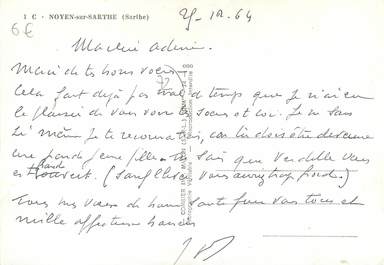 1 C - NOYEN-sur-SARTHE (Sarthe)
6€
Merci de tes bons voeux
72
cela fait déjà pas mal de temps que je n'ai eu
le plaisir de vous voir tes soeurs et toi. Je ne sais
si même je te reconnaitrai, car tu dois être devenue
une grande jeune fille. sais que Verdelle vous
est grand ouvert. (sauf l'hiver vous auriez trop froid.)
Tous mes voeux de bonne santé pour vous tous et
mille affectueux baisers